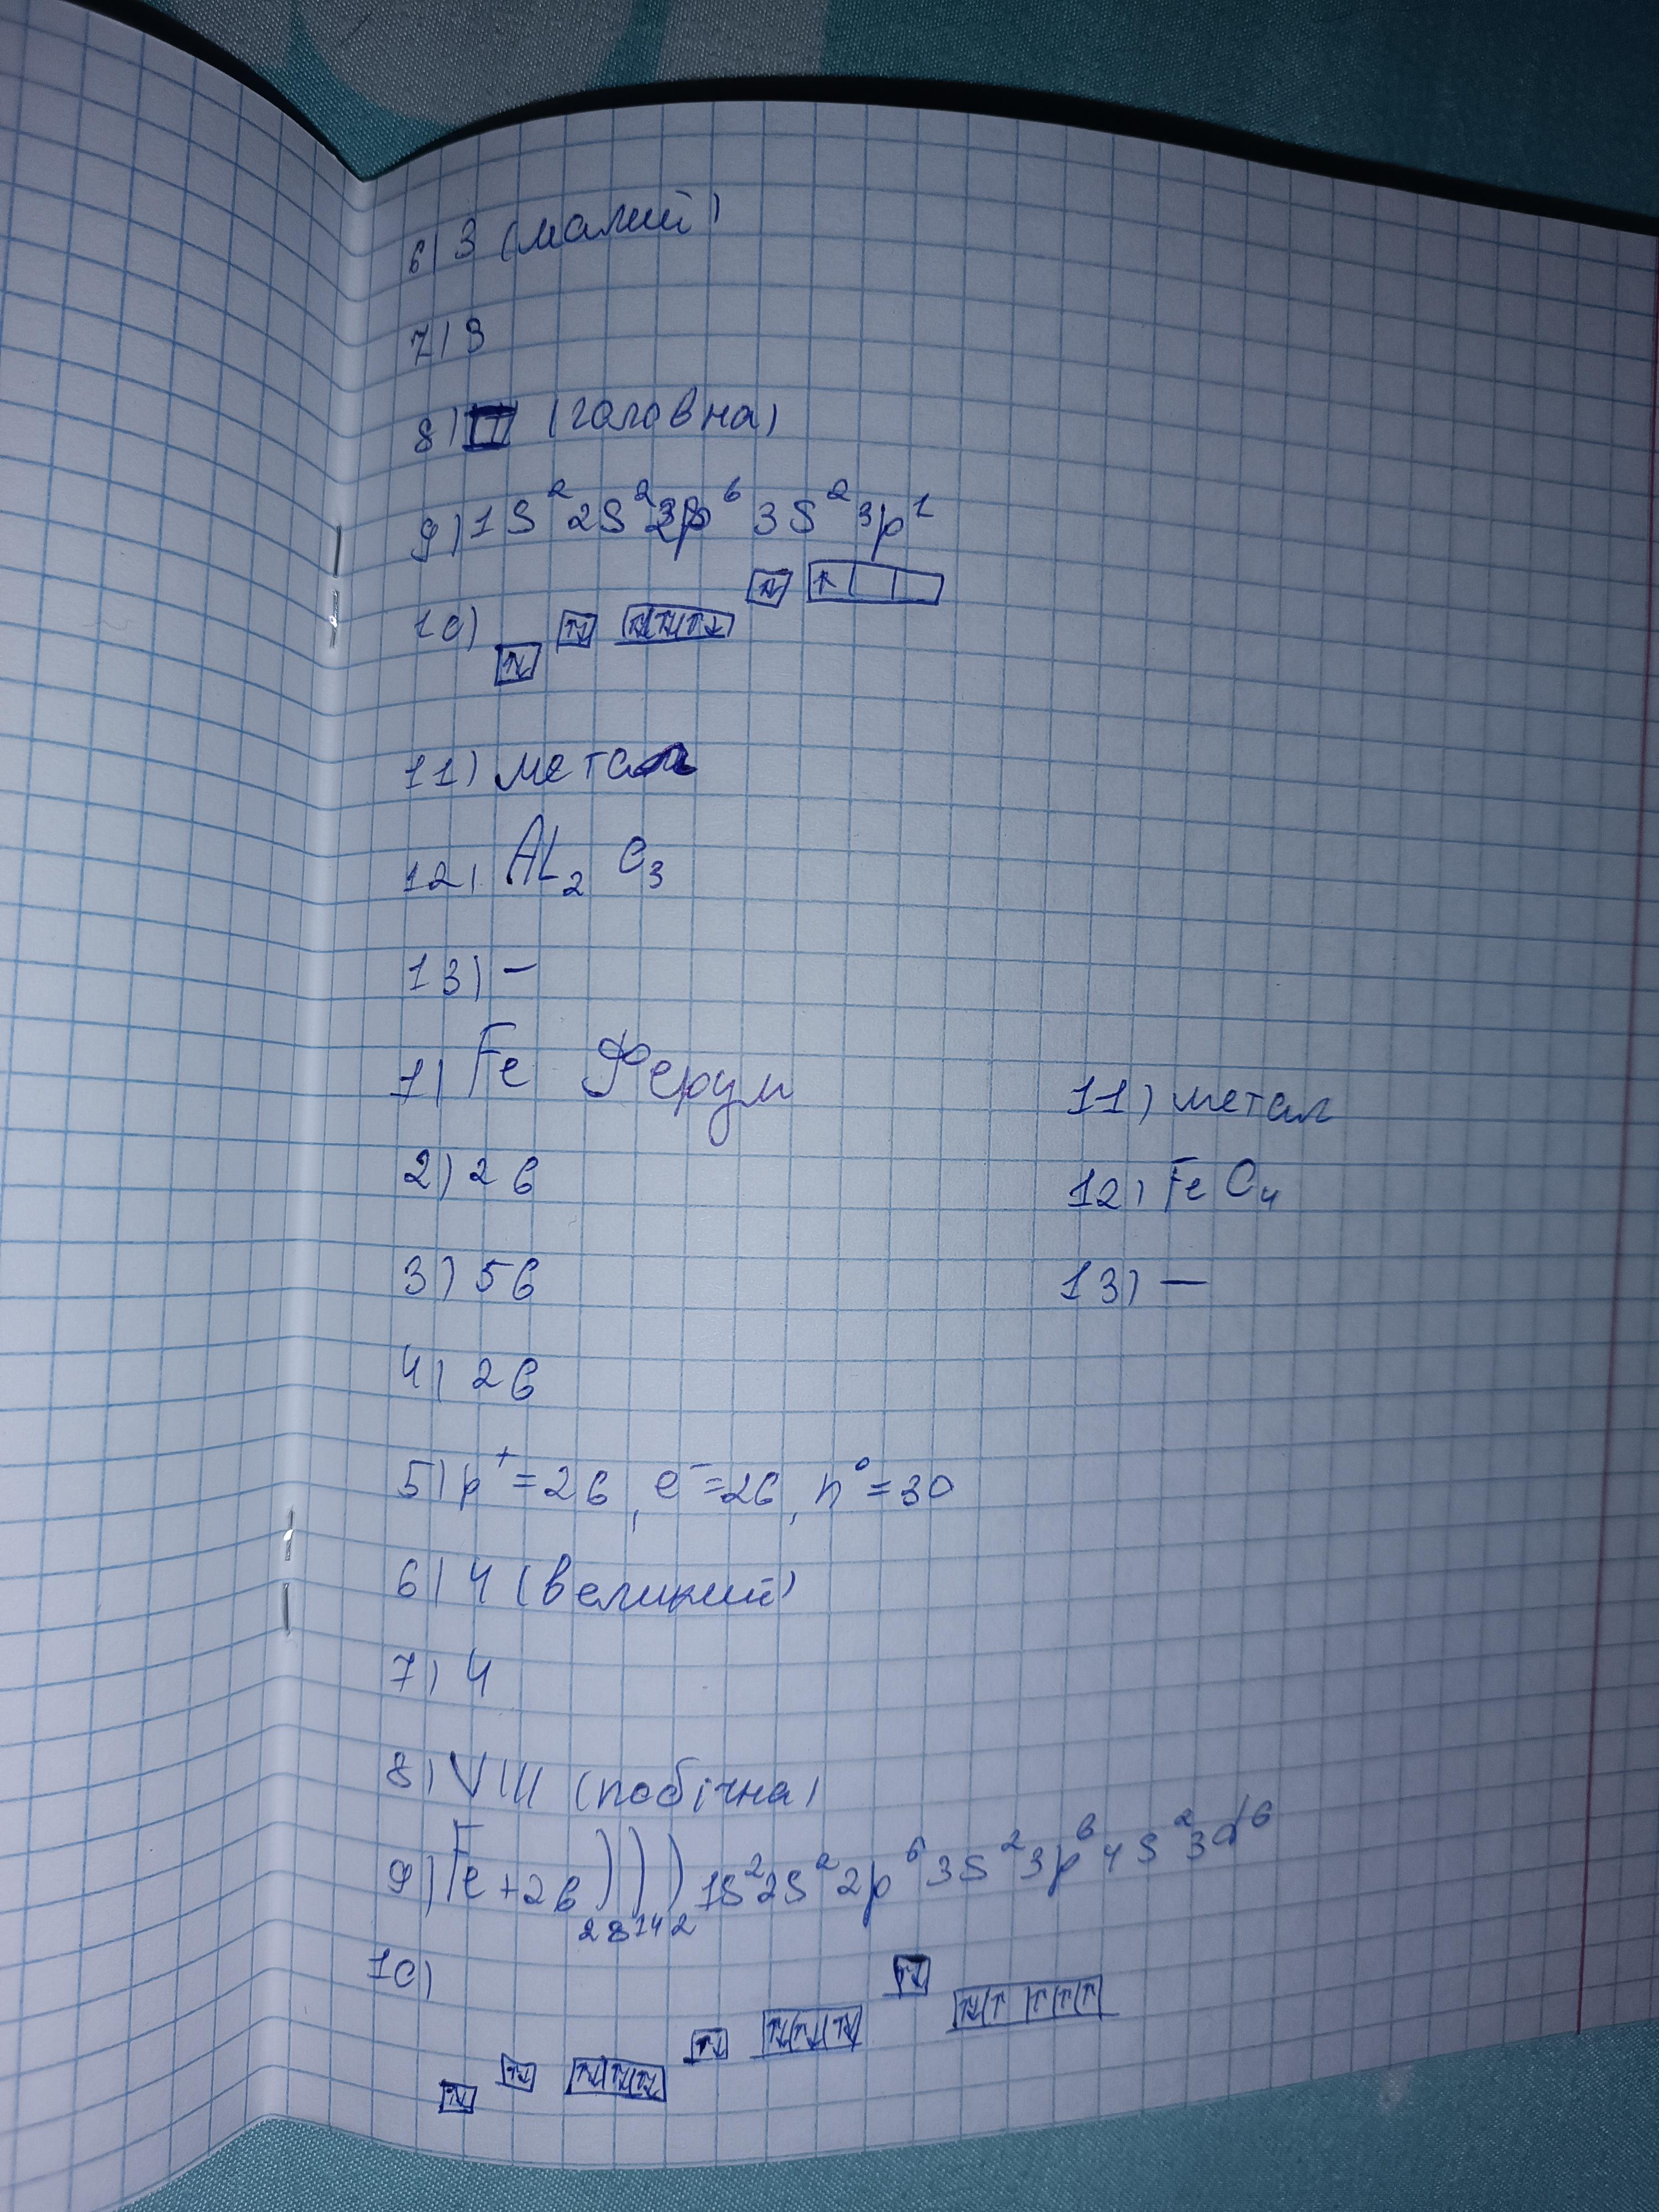 6) 3 (малий)
7) 3
8) III (головна)
9) 1S² 2S² 2p⁶ 3S² 3p¹
10) ↑↓ ↑↓ ↑↓ ↑↓ ↑↓ ↑↓ ↑
11) метал
12) AL₂ O₃
13) —
1) Fe Ферум
2) 26
3) 56
4) 26
5) p⁺ = 26, e⁻ = 26, n⁰ = 30
6) 4 (великий)
7) 4
8) VIII (побічна)
9) Fe +26 ) ) ) 1S² 2S² 2p⁶ 3S² 3p⁶ 4S² 3d⁶
2 8 14 2
10) ↑↓ ↑↓ ↑↓ ↑↓ ↑↓ ↑↓ ↑↓ ↑↓ ↑↓ ↑↓ ↑↓ ↑ ↑ ↑ ↑
11) метал
12) Fe O₄
13) —